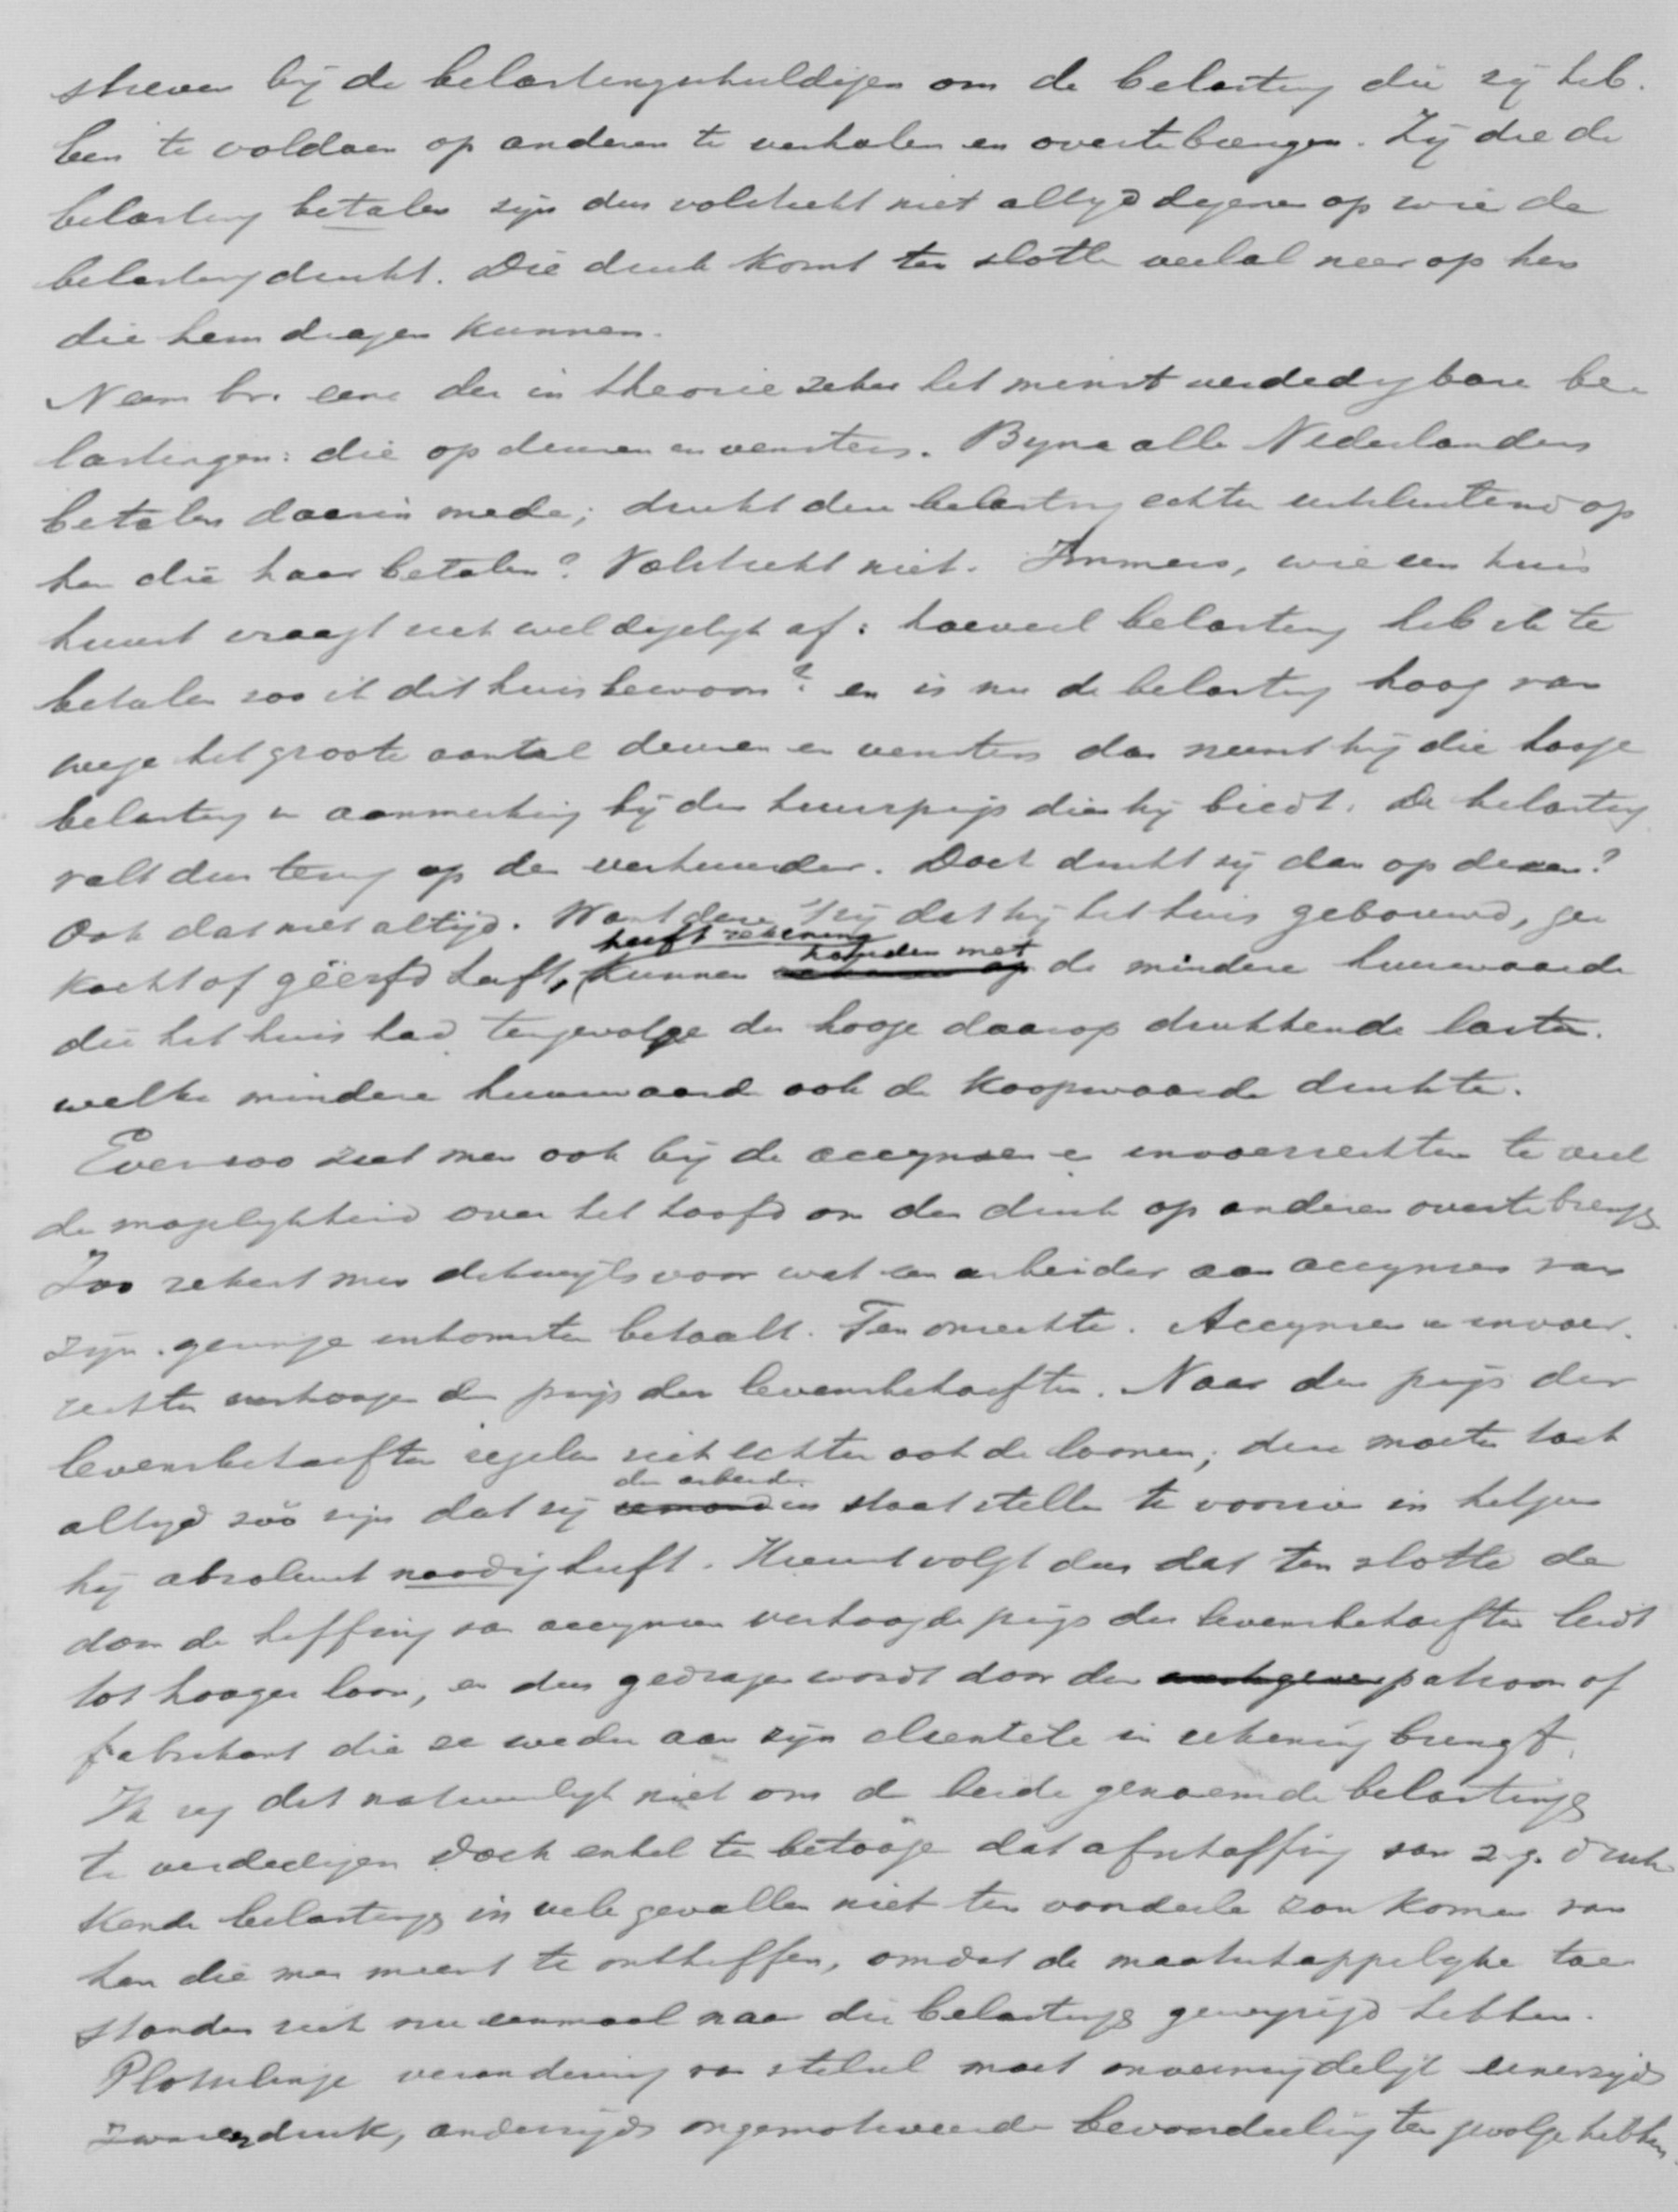 streven bij de belastingschuldigen om de belasting die zij heb-
ben te voldoen op anderen te verhalen en overtebrengen. Zij die de
belasting betalen zijn dus volstrekt niet altyd degenen op wie de
belasting drukt. Die druk komt ten slotte veelal neer op hen
die hem dragen kunnen.
Neem bv. eene der in theorie zeker het minst verdedigbare be-
lastingen: die op deuren en vensters. Byna alle Nederlanders
betalen daarin mede; drukt deze belasting echter uitsluitend op
hen die haar betalen? Volstrekt niet. Immers, wie een huis
huurt vraagt zich wel degelyk af: hoeveel belasting heb ik te
betalen zoo ik dit huis bewoon? en is nu de belasting hoog van
wege het groote aantal deuren en vensters dan neemt hij die hooge
belasting in aanmerking bij den huurprijs dien hij biedt. De belasting
valt dus terug op den verhuurder. Doch drukt zij dan op dezen?
Ook dat niet altijd. Want deze 't zij dat hij het huis gebouwd, ge
kocht of geërfd heeft, heeft rekening kunnen houden met de mindere huurwaarde
die het huis had tengevolge der hooge daarop drukkende lasten.
welke mindere huurwaarde ook de koopwaarde drukte.
Evenzoo ziet men ook bij de accynsen en invoerrechten te veel
de mogelykheid over het hoofd om den druk op anderen overtebrengen
Zoo rekent men dikwyls voor wat een arbeider aan accynsen van
zijn geringe inkomsten betaalt. Ten onrechte. Accynsen en invoer-
rechten verhoogen den prijs der levensbehoeften. Naar den prijs der
levensbehoeften regelen zich echter ook de loonen; deze moeten toch
altyd zóó zijn dat zij den arbeider in staat stellen te voorzien in hetgeen
hij absoluut noodig heeft. Hieruit volgt dus dat ten slotte de
door de heffing van accynsen verhoogde prijs der levensbehoeften leidt
tot hooger loon, en dus gedragen wordt door den patroon of
fabrikant die ze weder aan zijn clientèle in rekening brengt.
Ik zeg dit natuurlyk niet om de beide genoemde belastingen
te verdedigen doch enkel te betoogen dat afschaffing van z.g. druk
kende belastingen in vele gevallen niet ten voordeele zou komen van
hen die men meent te ontheffen, omdat de maatschappelyke toe
standen zich nu eenmaal naar die belastingen gewyzigd hebben.
Plotselinge verandering van stelsel moet onvermydelijk eenerzijds
zwaren druk, anderzijds ongemotiveerde bevoordeeling ten gevolge hebben